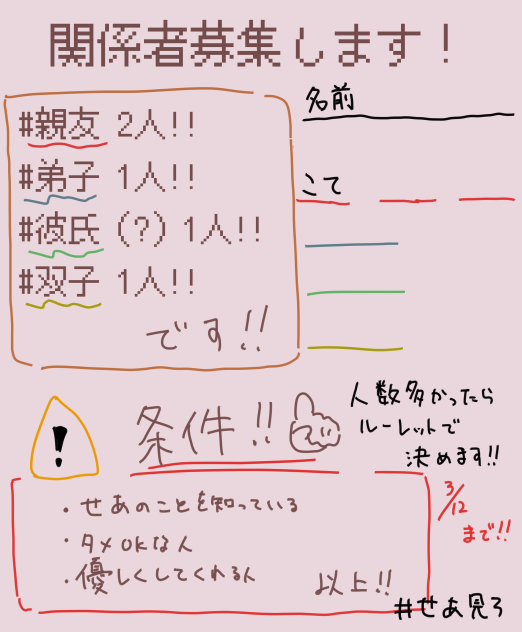 関係者募集します！
#親友 2人!!
#弟子 1人!!
#彼氏 (?) 1人!!
#双子 1人!!
です!!
名前
こて
条件!!
人数多かったら
ルーレットで
決めます!!
3/12
まで!!
・せあのことを知っている
・タメOKな人
・優しくしてくれる人
以上!!
#せあ見ろ